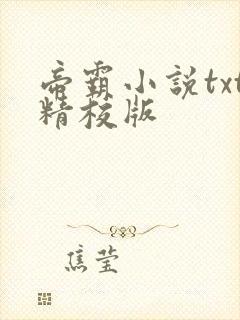 帝霸小説txt
精校版
焦莹